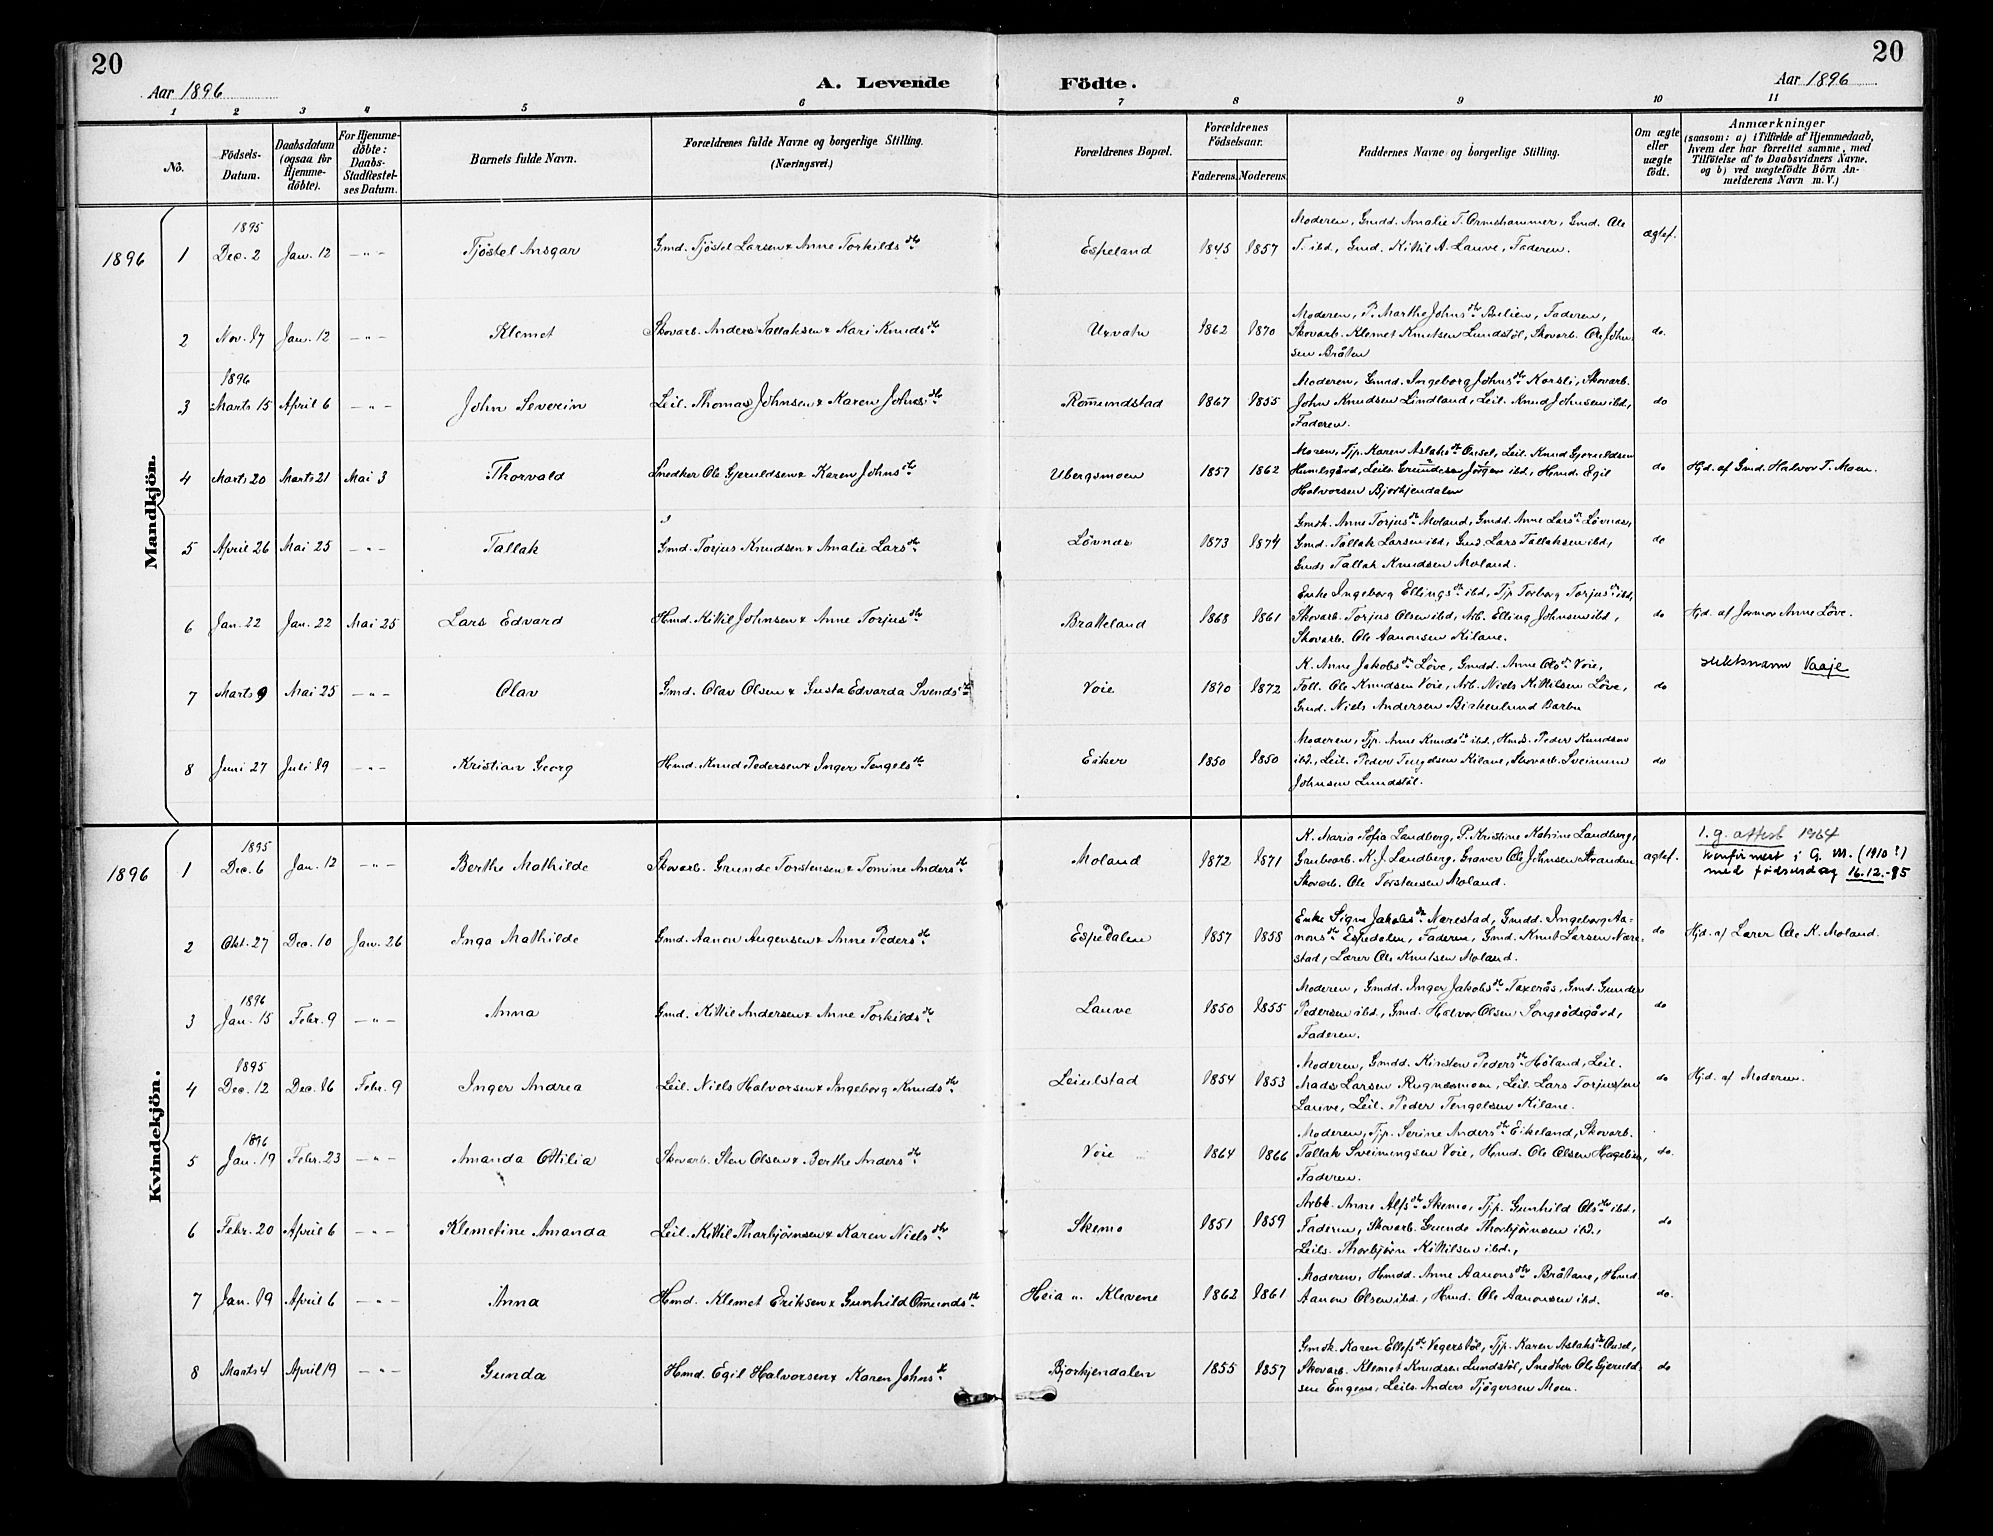 20
20
Aar 1896
A. Levende Födte.
Aar 1896
1 2 3 4 5 6 7 8 9 10 11
No.
Födsels-Datum.
Daabsdatum (ogsaa for Hjemme-döbte).
For Hjemme-döbte: Daabs-Stadfæstel-ses Datum.
Barnets fulde Navn.
Forældrenes fulde Navne og borgerlige Stilling. (Næringsvei.)
Forældrenes Bopæl.
Forældrenes Födselsaar.
Faderens. Moderens.
Faddernes Navne og borgerlige Stilling.
Om ægte eller uægte födt.
Anmærkninger
(saasom: a) i Tilfælde af Hjemmedaab,
hvem der har forrettet samme, med
Tilföielse af to Daabsvidners Navne,
og b) ved uægtefödte Börn An-
melderens Navn m. V.)
Mandkjön.
1896 1 1895 Dec. 2 Jan. 12 —"— Tjøstel Ansgar Gmd. Tjøstel Larsen & Anne Torkildsdtr Espeland 1845 1857
Moderen, Gmdd. Amalie T. Ormshammer, Gmd. Ole
T. ibd, Gmd. Kittil A. Lauve, Faderen.
ægtef.
2 Nov. 17 Jan. 12 —"— Klemet Skovarb. Anders Tallaksen & Kari Knudsdtr Urvatn 1862 1870
Moderen, P. Marthe Johnsdtr Bulien, Faderen,
Skovarb. Klemet Knutsen Lundstøl, Skovarb. Ole John-
sen Bråten
do.
3 1896 Marts 15 April 6 —"— John Severin Leil. Thomas Johnsen & Karen Johnsdtr Romundstad 1867 1855
Moderen, Gmdd. Ingeborg Johnsdtr Korsli, Skovarb.
John Knudsen Lindland, Leil. Knud Johnsen ibd,
Faderen.
do
4 Marts 20 Marts 21 Mai 3 Thorvald Snedker Ole Gjeruldsen & Karen Johnsdtr Ubergsmoen 1857 1862
Moren, Tjp. Karen Aslaksdtr Ousel, Leil. Knud Gjeruldsen
Humlegård, Leils. Jørgen ibd, Hmd. Egil
Halvorsen Bjorkjendalen
do Hjd. af Gmd. Halvor T. Moen.
5 April 26 Mai 25 —"— Tallak Gmd. Torjus Knudsen & Amalie Larsdtr Løvnes 1873 1874
Gmdk. Anne Torjusdtr Moland, Gmdd. Anne Larsdtr Løvnes,
Gmd. Tallak Larsen ibd, Gmd. Lars Tallaksen ibd,
Gmds Tallak Knudsen Moland.
do
6 Jan. 22 Jan. 22 Mai 25 Lars Edvard Hmd. Kittil Johnsen & Anne Torjusdtr Bratteland 1868 1861
Enke Ingeborg Ellingsdtr ibd, Tjp Torborg Torjusdtr ibd,
Skovarb. Torjus Olsen ibd, Arb. Elling Johnsen ibd,
Skovarb. Ole Aanonsen Kilane.
do Hjd. af Jormor Anne Løve.
7 Marts 9 Mai 25 —"— Olav Gmd. Olav Olsen & Gusta Edvarda Svendsdtr Voie 1870 1872
K. Anne Jakobsdtr Løve, Gmdd. Anne Olsdtr Voie,
Toll. Ole Knudsen Voie, Arb. Niels Kittilsen Løve,
Gmd. Niels Andersen Birkenlund Barbu
do slektsnavn Vaaje
8 Juni 27 Juli 19 —"— Kristian Georg Hmd. Knud Pedersen & Inger Tengelsdtr Eikser 1850 1850
Moderen, Tjp. Anne Knudsdtr ibd., Hmds. Peder Knudsen
ibd., Leil. Peder Tengelsen Kilane, Skovarb. Sveinung
Johnsen Lundstøl.
do
Kvindekjön.
1896 1 1895 Dec. 6 Jan. 12 —"— Berthe Mathilde Skovarb. Grunde Torstensen & Tomine Andersdtr Moland 1872 1871
K. Maria Sofia Landberg, P. Kristine Katrine Landberg,
Grubearb. K. J. Landberg, Graver Ole Johnsen Stranden
Skovarb. Ole Torstensen Moland.
ægtef.
1. g. attest 1964
konfirmert i G. M. (1910?)
med fødselsdag 16.12.-95
2 Okt. 27 Dec. 10 Jan. 26 Inga Mathilde Gmd. Aanon Augensen & Anne Pedersdtr Espedalen 1857 1858
Enke Signe Jakobsdtr Nærestad, Gmdd. Ingeborg Aa-
nonsdtr Espedalen, Faderen, Gmd. Knut Larsen Nære-
stad, Lærer Ole Knutsen Moland.
do Hjd. af Lærer Ole K. Moland.
3 1896 Jan. 15 Febr. 9 —"— Anna Gmd. Kittil Andersen & Anne Torkildsdtr Lauve 1850 1855
Moderen, Gmdd. Inger Jakobsdtr Taxerås, Gmd. Gunder
Pedersen ibd, Gmd. Halvor Olsen Songeødegård,
Faderen.
do
4 1895 Dec. 12 Dec. 16 Febr. 9 Inger Andrea Leil. Niels Halvorsen & Ingeborg Knudsdtr Leiulstad 1854 1853
Moderen, Gmdd. Kirsten Pedersdtr Høland, Leil.
Mads Larsen Rugnesmoen, Leil. Lars Torjussen
Lauve, Leil. Peder Tengelsen Kilane.
do Hjd. af Moderen.
5 1896 Jan. 19 Febr. 23 —"— Amanda Otilia Skovarb. Sten Olsen & Berthe Andersdtr Voie 1864 1866
Moderen, Tjp. Serine Andersdtr Eikeland, Skovarb.
Tallak Sveinungsen Voie, Hmd. Ole Olsen Hagelien,
Faderen.
do.
6 Febr. 20 April 6 —"— Klemetine Amanda Leil. Kittil Thorbjørnsen & Karen Nielsdtr Skemo 1851 1859
Arbk. Anne Alfsdtr Skemo, Tjp. Gunhild Olsdtr ibd,
Faderen, Skovarb. Grunde Thorbjørnsen ibd.,
Leils. Thorbjørn Kittilsen ibd.,
do
7 Jan. 19 April 6 —"— Anna Hmd. Klemet Eriksen & Gunhild Omundsdtr Heia u. Klevene 1862 1861
Moderen, Hmdd. Anne Aanonsdtr Bråtane, Hmd.
Aanon Olsen ibd., Hmd. Ole Aanonsen ibd.
do.
8 Marts 4 April 19 —"— Gunda Hmd. Egil Halvorsen & Karen Johnsdtr Bjorkjendalen 1855 1857
Gmdk. Karen Ellefsdtr Vegerstøl, Tjp. Karen Aslaksdtr Ousel,
Skovarb. Klemet Knudsen Lundstøl, Snedker Ole Gjeruld-
sen Engene, Leils. Anders Tjøgersen Moen.
do